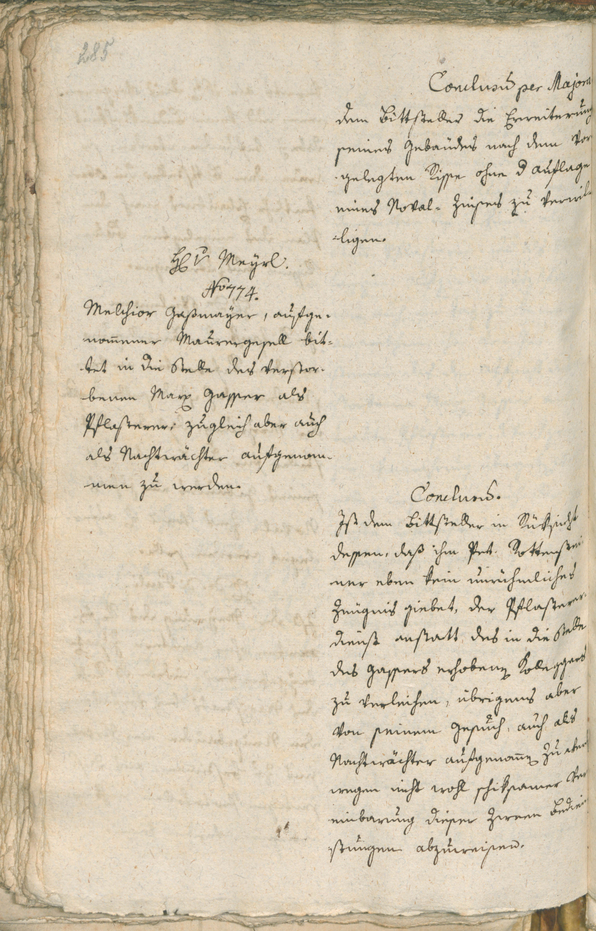 285
Conclusũ per Majora
dem Bittsteller die Erweiterung
seines Gebäudes nach dem Vor-
gelegten Risse ohne Auflage
eines Noval-Zinses zu verwil-
-ligen.
H v Meyrl.
No 774.
Melchior Gaßmayer, aufge-
nommener Maurergesell bit-
tet in die Stelle des verstor-
benen Marx Gasser als
Pflasterer; zugleich aber auch
als Nachtwächter aufgenom-
men zu werden.
Conclusũ.
Ist dem Bittsteller in Rücksicht
dessen, daß ihm Pet. Rottenstei
ner eben kein unrühmliches
Zeugnis giebet, der Pflasterer-
dienst anstatt des in die Stelle
des Gassers erhobenen
zu verleihen, übrigens aber
von seinem Gesuch, auch als
Nachtwächter aufgenomẽ zu
wegen nicht wohl schiksamer Ver
einbarung dieser zween Bedien
-stungen abzuweisen.